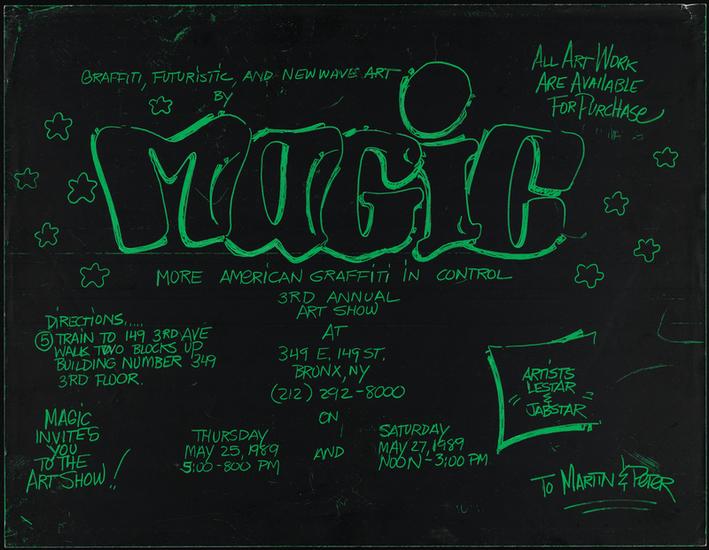 GRAFFITI, FUTURISTIC, AND NEW WAVE ART
BY
MAGIC
ALL ART WORK
ARE AVAILABLE
FOR PURCHASE
MORE AMERICAN GRAFFITI IN CONTROL
3RD ANNUAL
ART SHOW
AT
349 E. 149 ST.
BRONX, NY
(212) 292-8000
ON
THURSDAY
MAY 25, 1989
5:00-800 PM
AND
SATURDAY
MAY 27, 1989
NOON-3:00 PM
DIRECTIONS.....
5 TRAIN TO 149 3RD AVE
WALK TWO BLOCKS UP
BUILDING NUMBER 349
3RD FLOOR.
MAGIC
INVITES
YOU
TO THE
ART SHOW!!
ARTISTS
LESTAR
&
JABSTAR
TO MARTIN & PETER